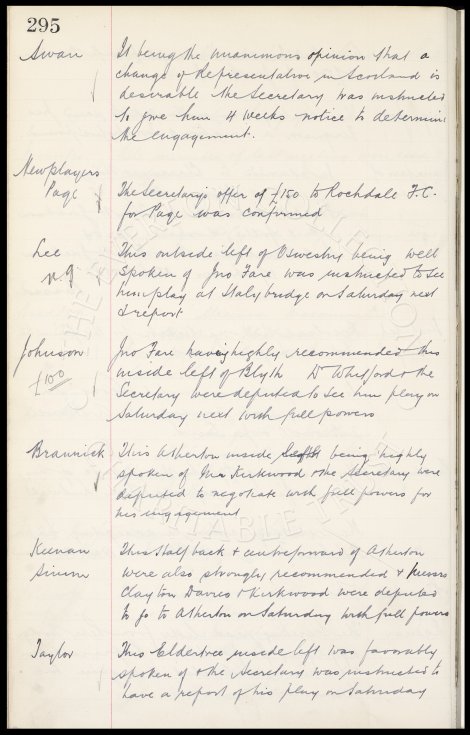 295
Swan
It being the unanimous opinion that a
change of Representative in Scotland is
desirable the Secretary was instructed
to give him 4 weeks notice to determine
the engagement.
New players
Page
The Secretary's offer of £150 to Rochdale F.C.
for Page was confirmed
Lee
n.g
This outside left of Oswestry being well
spoken of Jno Fare was instructed to see
him play at Stalybridge on Saturday next
& report
Johnson
£100
Jno Fare having highly recommended this
inside left of Blyth Dr Whitford & the
Secretary were deputed to see him play on
Saturday next with full powers
Brannick
This Atherton inside being highly
spoken of Mr Kirkwood & the Secretary were
deputed to negotiate with full powers for
his engagement
Keenan
This Half back & centre forward of Atherton
were also strongly recommended & Messrs
Clayton Davies & Kirkwood were deputed
to go to Atherton on Saturday with full powers
Taylor
This Eldertree inside left was favorably
spoken of & the Secretary was instructed to
have a report of his play on Saturday